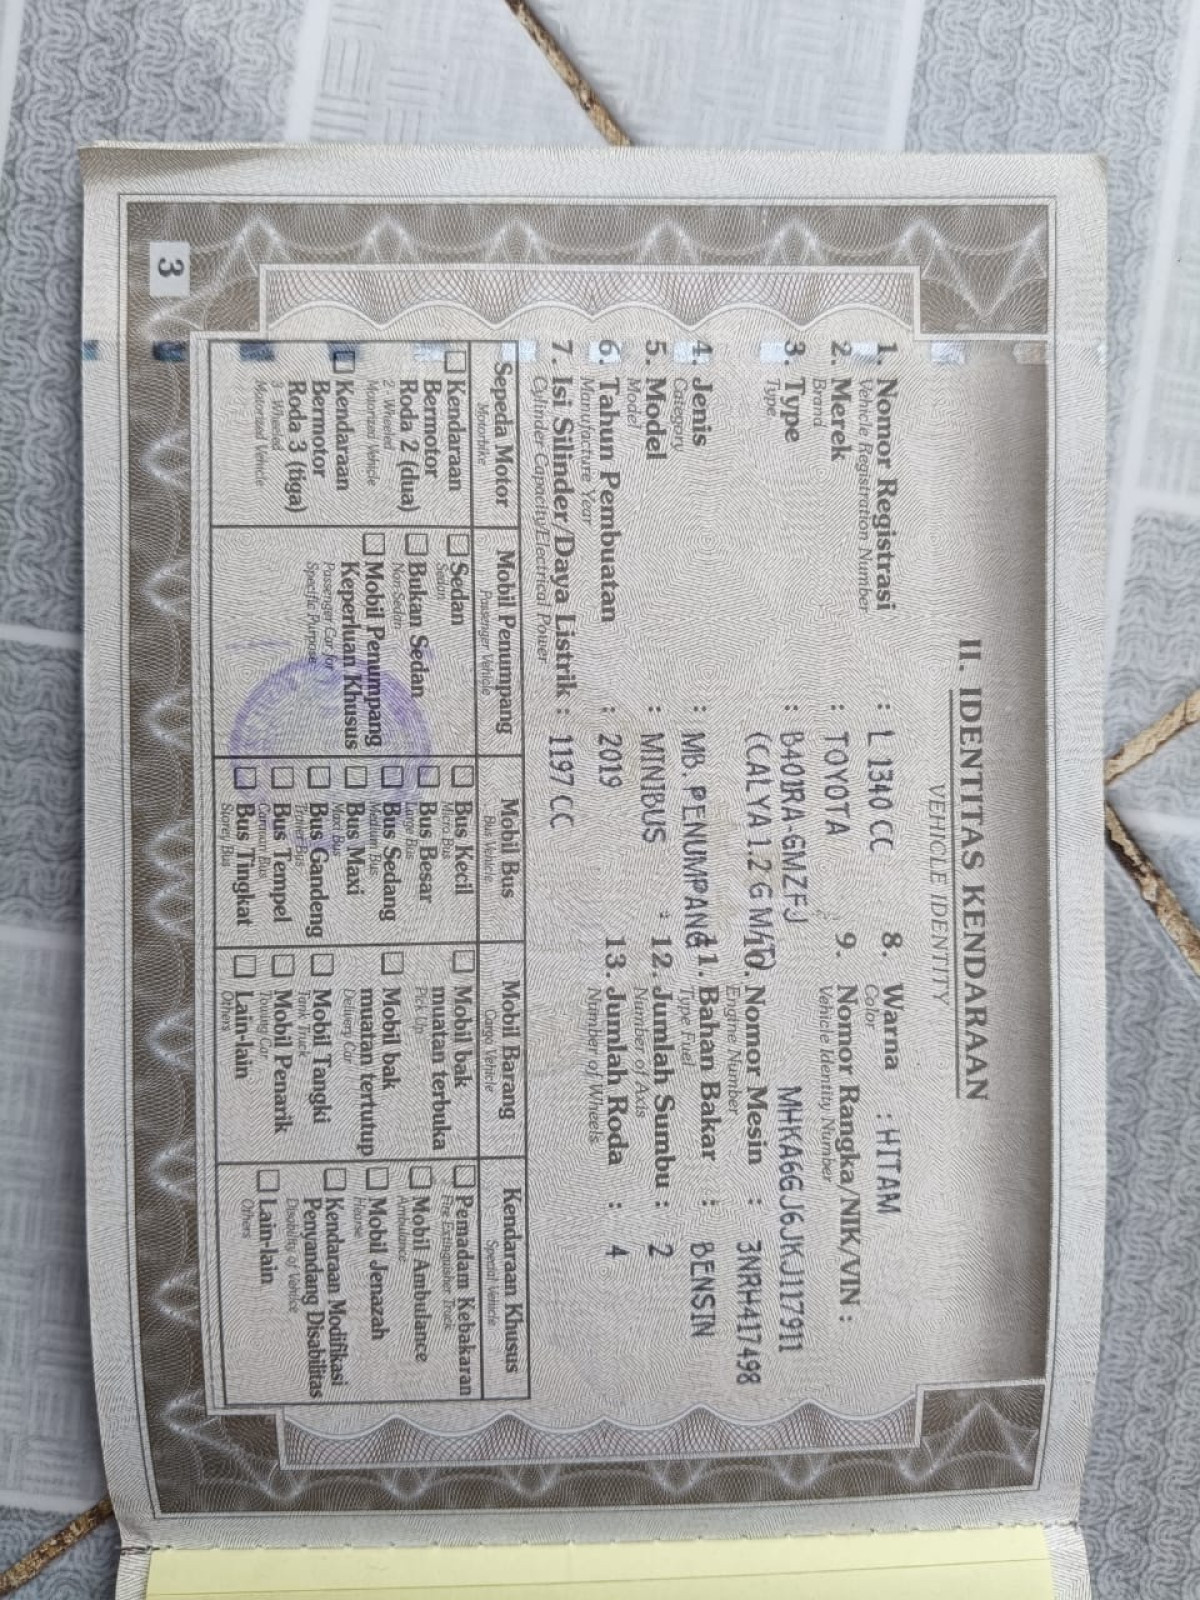 II. IDENTITAS KENDARAAN
VEHICLE IDENTITY
1. Nomor Registrasi : L 1340 CC
Vehicle Registration Number
2. Merek : TOYOTA
Brand
3. Type : B401RA-GMZFJ
Type
(CALYA 1.2 G M/T)
4. Jenis : MB. PENUMPANG
Category
5. Model : MINIBUS
Model
6. Tahun Pembuatan : 2019
Manufacture Year
7. Isi Silinder/Daya Listrik : 1197 CC
Cylinder Capacity/Electrical Power
8. Warna : HITAM
Color
9. Nomor Rangka/NIK/VIN :
Vehicle Identity Number
MHKA6GJ6JKJ117911
10. Nomor Mesin : 3NRH417498
Engine Number
11. Bahan Bakar : BENSIN
Type Fuel
12. Jumlah Sumbu : 2
Number of Axis
13. Jumlah Roda : 4
Number of Wheels
Sepeda Motor
Motorbike
Kendaraan
Bermotor
Roda 2 (dua)
2 Wheeled
Motorized Vehicle
Kendaraan
Bermotor
Roda 3 (tiga)
3 Wheeled
Motorized Vehicle
Mobil Penumpang
Passenger Vehicle
Sedan
Sedan
Bukan Sedan
Non Sedan
Mobil Penumpang
Keperluan Khusus
Passenger Car for
Specific Purpose
Mobil Bus
Bus Vehicle
Bus Kecil
Micro Bus
Bus Besar
Large Bus
Bus Sedang
Medium Bus
Bus Maxi
Maxi Bus
Bus Gandeng
Trailer Bus
Bus Tempel
Bus Tingkat
Storey Bus
Mobil Barang
Cargo Vehicle
Mobil bak
muatan terbuka
Pick Up
Mobil bak
muatan tertutup
Delivery Car
Mobil Tangki
Tank Truck
Mobil Penarik
Towing Car
Lain-lain
Others
Kendaraan Khusus
Special Vehicle
Pemadam Kebakaran
Fire Extinguisher Truck
Mobil Ambulance
Ambulance
Mobil Jenazah
Hearse
Kendaraan Modifikasi
Penyandang Disabilitas
Disability of Vehicle
Lain-lain
Others
3